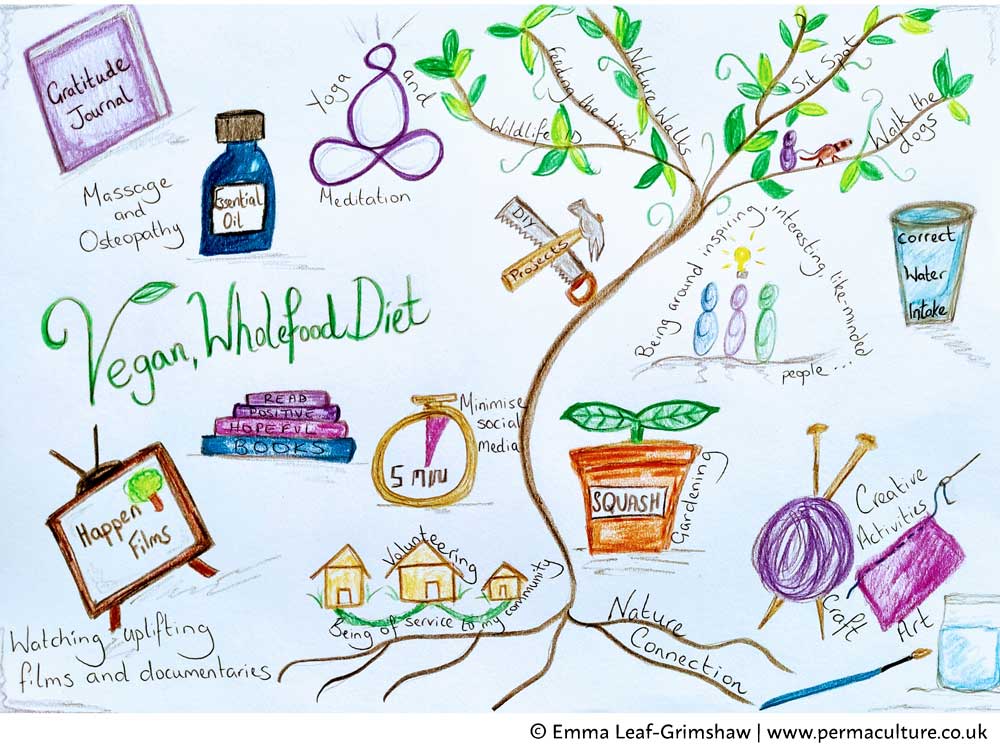 Gratitude
Journal
Massage
and
Osteopathy
Essential
Oil
Yoga and
Meditation
Wildlife
Feeding the birds
Nature Walks
Sit Spot
Walk the
dogs
DIY
Projects
Being around inspiring, interesting, like-minded
people...
Correct
Water
Intake
Vegan, Wholefood Diet
READ
POSITIVE
HOPEFUL
BOOKS
5 MIN
Minimise
social
media
SQUASH
Gardening
Creative
Activities
Craft
Art
Happen
Films
Watching uplifting
films and documentaries
Volunteering
Being of service to my community
Nature
Connection
© Emma Leaf-Grimshaw | www.permaculture.co.uk